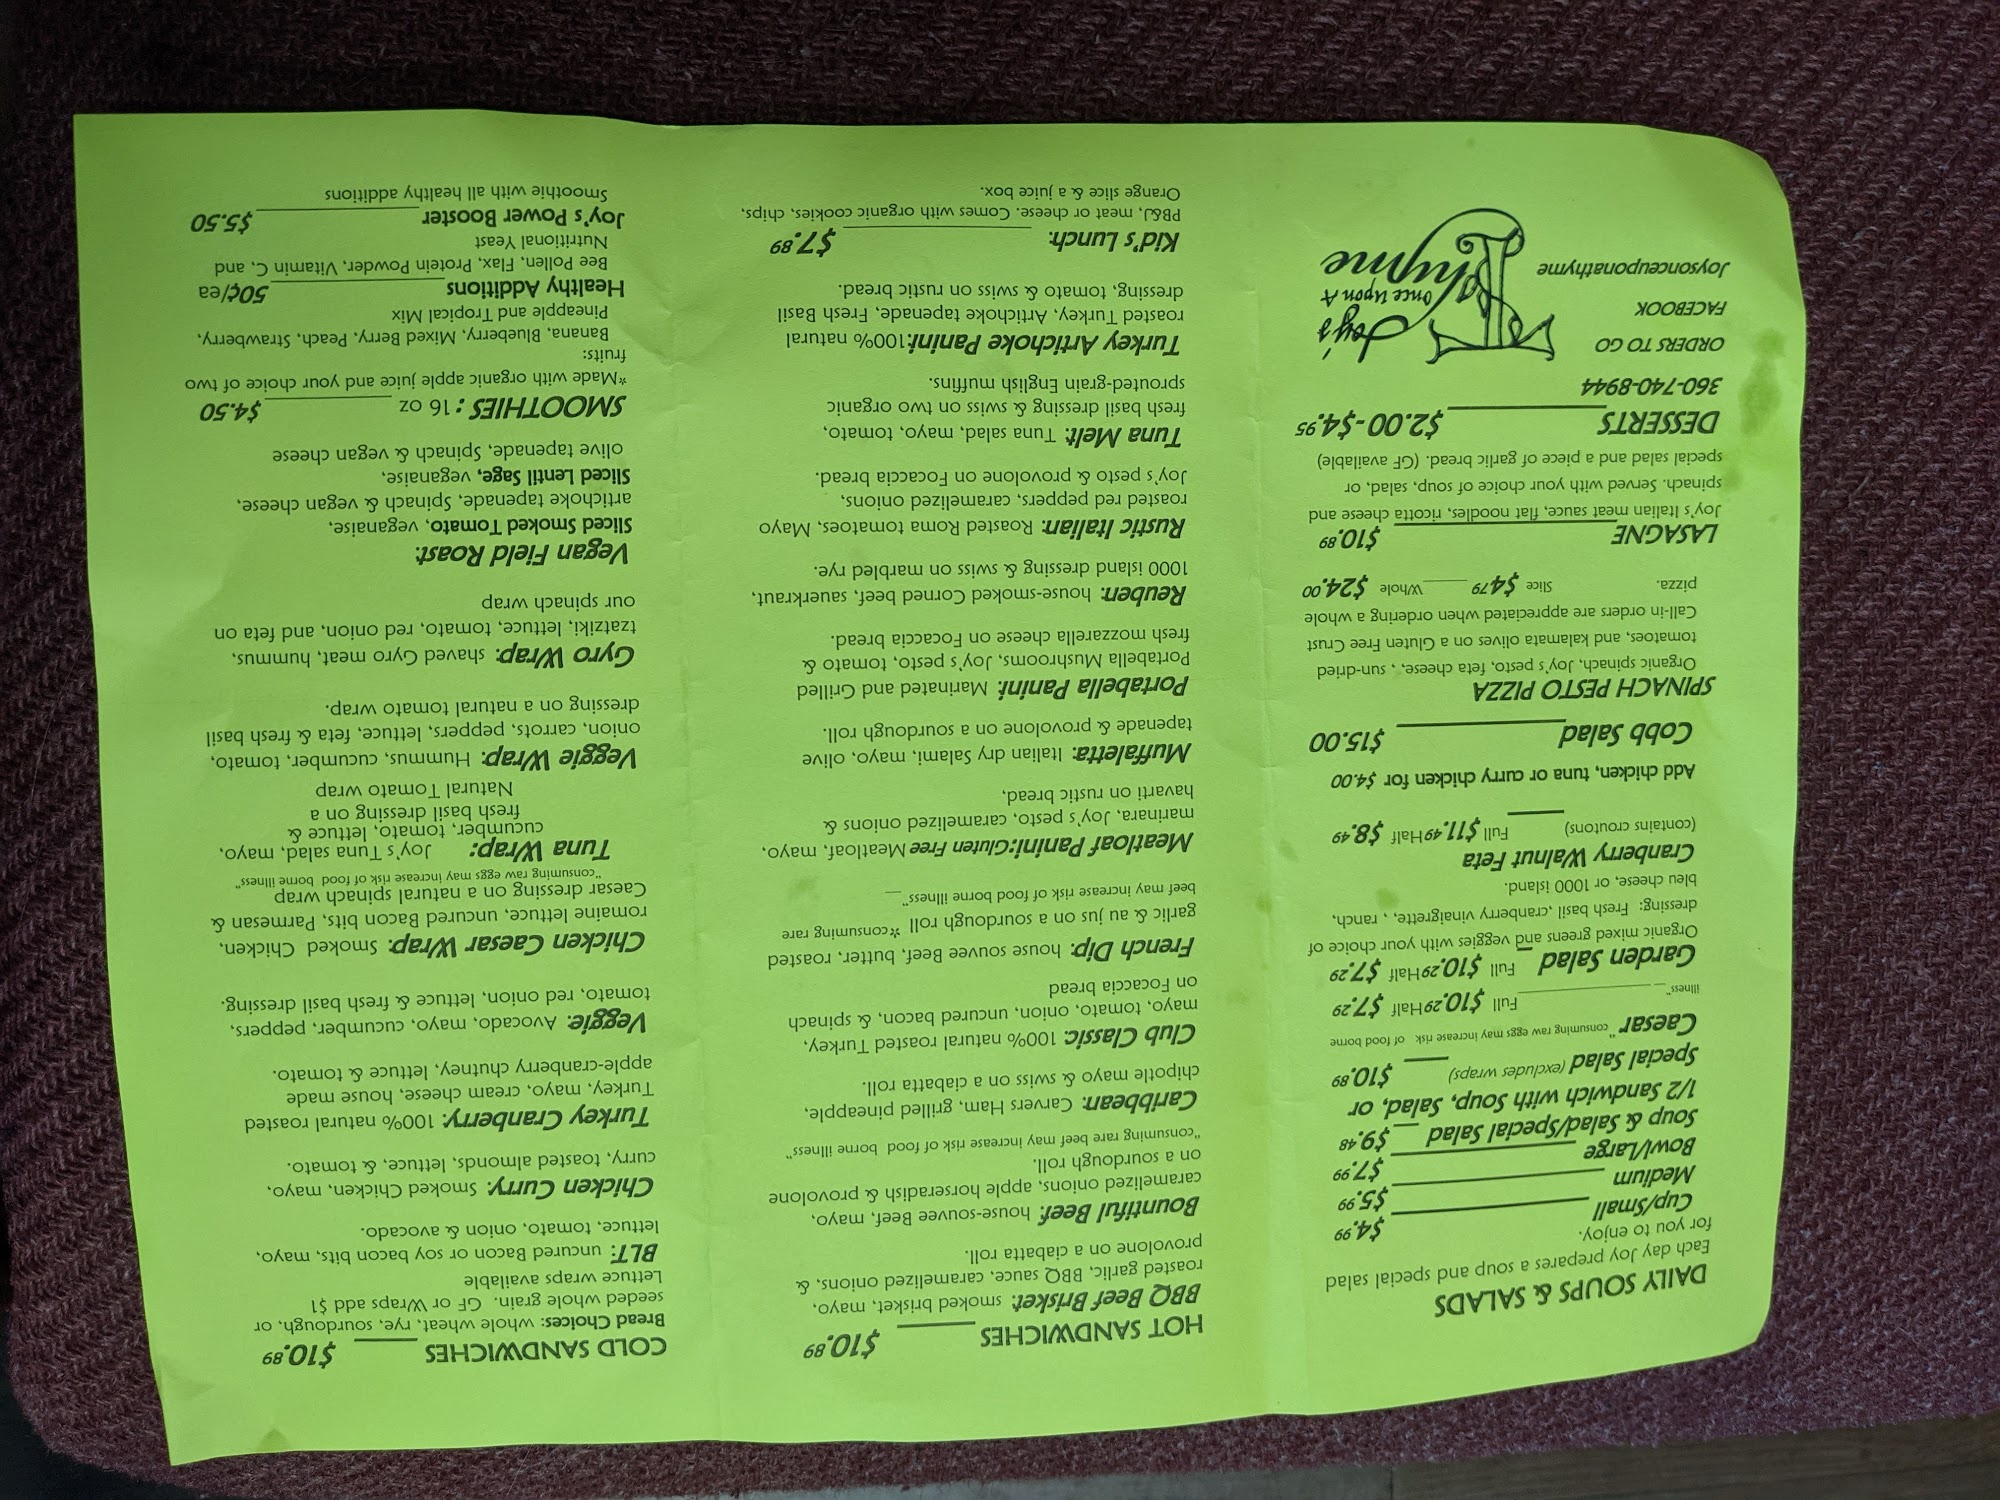 DAILY SOUPS & SALADS
Each day Joy prepares a soup and special salad
for you to enjoy.
Cup/Small $4.99
Medium $5.99
Bowl/Large $7.99
Soup & Salad/Special Salad $9.48
1/2 Sandwich with Soup, Salad, or
Special Salad (excludes wraps) $10.89
Caesar "consuming raw eggs may increase risk of food borne
illness" Full $10.29 Half $7.29
Garden Salad Full $10.29 Half $7.29
Organic mixed greens and veggies with your choice of
dressing: Fresh basil ,cranberry vinaigrette, , ranch,
bleu cheese, or 1000 island.
Cranberry Walnut Feta
(contains croutons) Full $11.49 Half $8.49
Add chicken, tuna or curry chicken for $4.00
Cobb Salad $15.00
SPINACH PESTO PIZZA
Organic spinach, Joy's pesto, feta cheese, , sun-dried
tomatoes, and kalamata olives on a Gluten Free Crust
Call-in orders are appreciated when ordering a whole
pizza. Slice $4.79 Whole $24.00
LASAGNE $10.89
Joy's Italian meat sauce, flat noodles, ricotta cheese and
spinach. Served with your choice of soup, salad, or
special salad and a piece of garlic bread. (GF available)
DESSERTS $2.00-$4.95
360-740-8944
ORDERS TO GO
FACEBOOK
Joysonceuponathyme
Joy's
Once Upon A
Thyme
HOT SANDWICHES $10.89
BBQ Beef Brisket: smoked brisket, mayo,
roasted garlic, BBQ sauce, caramelized onions, &
provolone on a ciabatta roll.
Bountiful Beef: house-souvee Beef, mayo,
caramelized onions, apple horseradish & provolone
on a sourdough roll.
"consuming rare beef may increase risk of food borne illness"
Caribbean: Carvers Ham, grilled pineapple,
chipotle mayo & swiss on a ciabatta roll.
Club Classic: 100% natural roasted Turkey,
mayo, tomato, onion, uncured bacon, & spinach
on Focaccia bread
French Dip: house souvee Beef, butter, roasted
garlic & au jus on a sourdough roll *consuming rare
beef may increase risk of food borne illness"
Meatloaf Panini:Gluten Free Meatloaf, mayo,
marinara, Joy's pesto, caramelized onions &
havarti on rustic bread,
Muffaletta: Italian dry Salami, mayo, olive
tapenade & provolone on a sourdough roll.
Portabella Panini: Marinated and Grilled
Portabella Mushrooms, Joy's pesto, tomato &
fresh mozzarella cheese on Focaccia bread.
Reuben: house-smoked Corned beef, sauerkraut,
1000 island dressing & swiss on marbled rye.
Rustic Italian: Roasted Roma tomatoes, Mayo
roasted red peppers, caramelized onions,
Joy's pesto & provolone on Focaccia bread.
Tuna Melt: Tuna salad, mayo, tomato,
fresh basil dressing & swiss on two organic
sprouted-grain English muffins.
Turkey Artichoke Panini:100% natural
roasted Turkey, Artichoke tapenade, Fresh Basil
dressing, tomato & swiss on rustic bread.
Kid's Lunch: $7.89
PB&J, meat or cheese. Comes with organic cookies, chips,
Orange slice & a juice box.
COLD SANDWICHES $10.89
Bread Choices: whole wheat, rye, sourdough, or
seeded whole grain. GF or Wraps add $1
Lettuce wraps available
BLT: uncured Bacon or soy bacon bits, mayo,
lettuce, tomato, onion & avocado.
Chicken Curry: Smoked Chicken, mayo,
curry, toasted almonds, lettuce, & tomato.
Turkey Cranberry: 100% natural roasted
Turkey, mayo, cream cheese, house made
apple-cranberry chutney, lettuce & tomato.
Veggie: Avocado, mayo, cucumber, peppers,
tomato, red onion, lettuce & fresh basil dressing.
Chicken Caesar Wrap: Smoked Chicken,
romaine lettuce, uncured Bacon bits, Parmesan &
Caesar dressing on a natural spinach wrap
"consuming raw eggs may increase risk of food borne illness"
Tuna Wrap: Joy's Tuna salad, mayo,
cucumber, tomato, lettuce &
fresh basil dressing on a
Natural Tomato wrap
Veggie Wrap: Hummus, cucumber, tomato,
onion, carrots, peppers, lettuce, feta & fresh basil
dressing on a natural tomato wrap.
Gyro Wrap: shaved Gyro meat, hummus,
tzatziki, lettuce, tomato, red onion, and feta on
our spinach wrap
Vegan Field Roast:
Sliced Smoked Tomato, veganaise,
artichoke tapenade, Spinach & vegan cheese,
Sliced Lentil Sage, veganaise,
olive tapenade, Spinach & vegan cheese
SMOOTHIES : 16 oz $4.50
*Made with organic apple juice and your choice of two
fruits:
Banana, Blueberry, Mixed Berry, Peach, Strawberry,
Pineapple and Tropical Mix
Healthy Additions 50¢/ea
Bee Pollen, Flax, Protein Powder, Vitamin C, and
Nutritional Yeast
Joy's Power Booster $5.50
Smoothie with all healthy additions